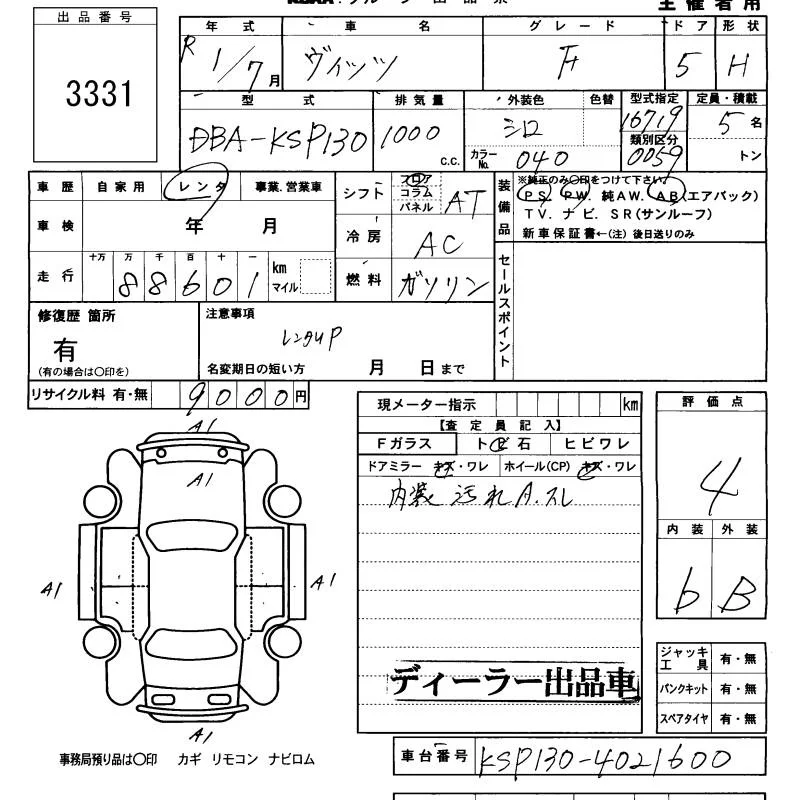 主催者用
出品番号
3331
年式 車名 グレード ドア 形状
R 1/7月 ヴィッツ F 5 H
型式 排気量 外装色 色替 型式指定 定員・積載
DBA-KSP130 1000 c.c. シロ 16719 5名
カラーNo. 040 類別区分 0059 トン
車歴 自家用 レンタ 事業.営業車
車検 年 月
走行 十万 万 千 百 十 一
88601 km マイル
シフト フロア コラム パネル AT
冷房 AC
燃料 ガソリン
装備品 ※純正のみ〇印をつけて下さい。
PS. PW. 純AW. AB(エアバック)
TV. ナビ. SR(サンルーフ)
新車保証書←(注)後日送りのみ
セールスポイント
修復歴 箇所
有
(有の場合は〇印を)
注意事項
レンタUP
名変期日の短い方 月 日まで
リサイクル料 有・無 9000円
現メーター指示 km
【査定員記入】
Fガラス トビ石 ヒビワレ
ドアミラー キズ・ワレ ホイール(CP) キズ・ワレ
内装 汚れ A.スレ
ディーラー出品車
評価点
4
内装 外装
b B
A1
A1
A1
A1
A1
ジャッキ 工具 有・無
パンクキット 有・無
スペアタイヤ 有・無
事務局預り品は〇印 カギ リモコン ナビロム
車台番号 KSP130-4021600